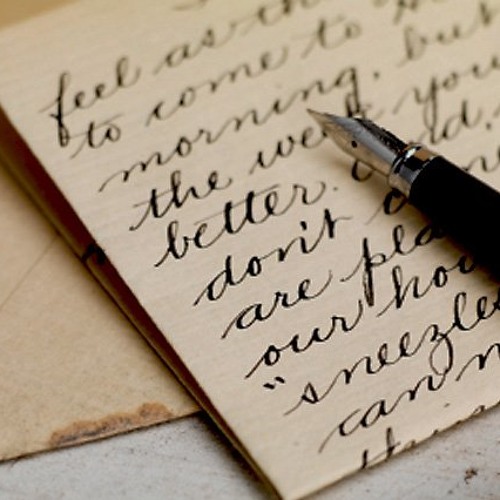 feel as th
to come to
morning, but
the week you
better.
don't
are pla
our hou
"sneezle
can n